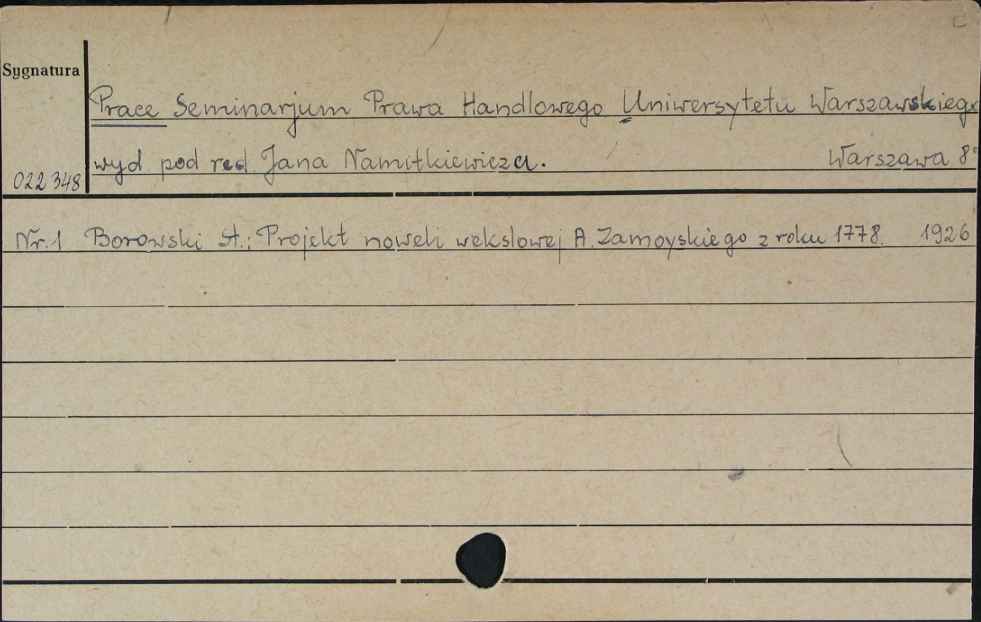 Sygnatura
Prace Seminarjum Prawa Handlowego Uniwersytetu Warszawskiego
wyd pod red Jana Namitkiewicza. Warszawa 8°
022348
Nr. 1 Borowski St.: Projekt noweli wekslowej A. Zamoyskiego z roku 1778. 1926